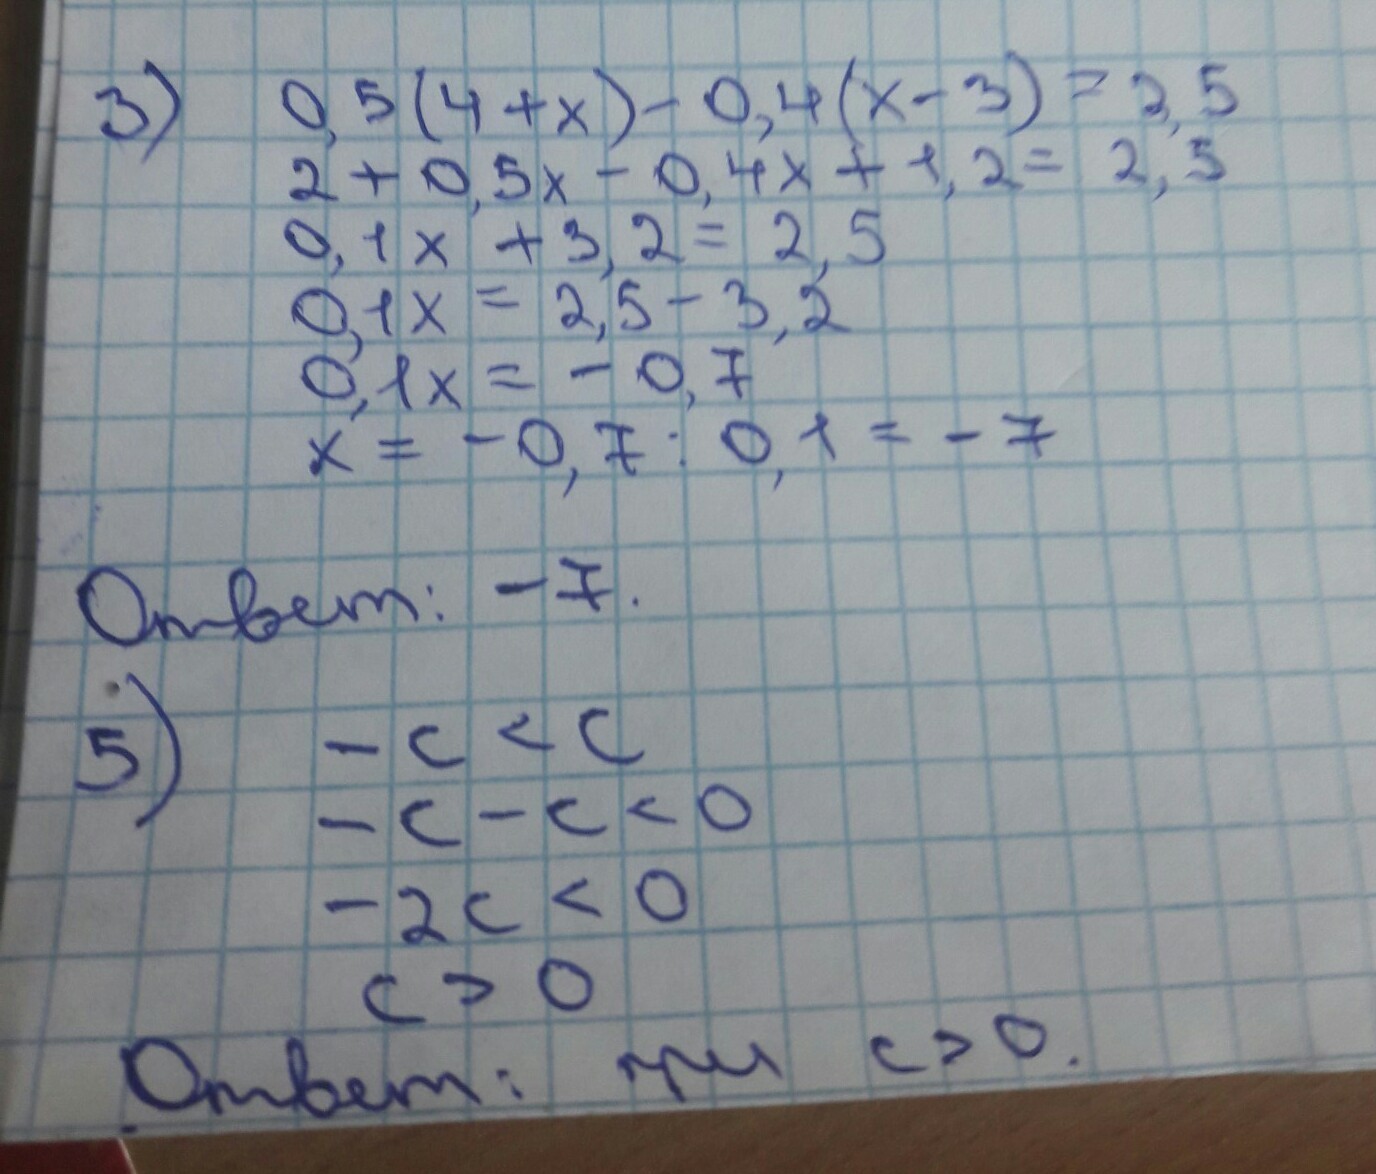 3) 0,5(4+x)-0,4(x-3)=2,5
2+0,5x-0,4x+1,2=2,5
0,1x+3,2=2,5
0,1x=2,5-3,2
0,1x=-0,7
x=-0,7:0,1=-7
Ответ: -7.
5) -c<c
-c-c<0
-2c<0
c>0
Ответ: при c>0.